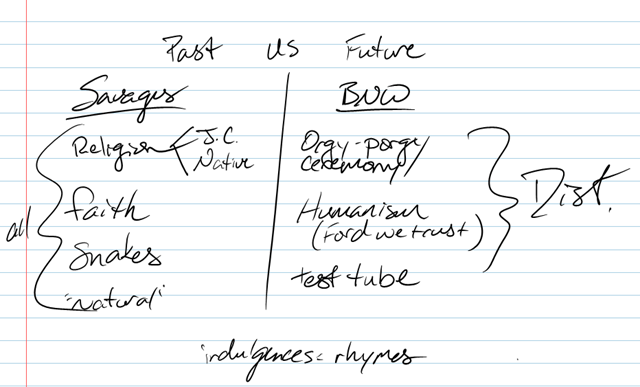 Past vs Future
Savages
BNW
Religion < J.C.
Native
Orgy-porgy
ceremony
faith
Humanism
(Ford we trust)
Dist.
all
Snakes
test tube
"Natural"
indulgences = rhymes